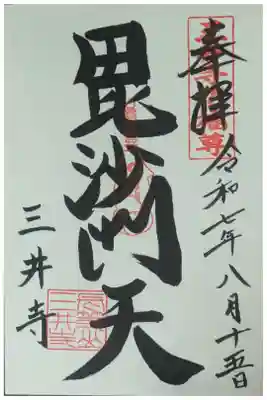 奉拝
令和七年八月十五日
毘沙門天
三井寺